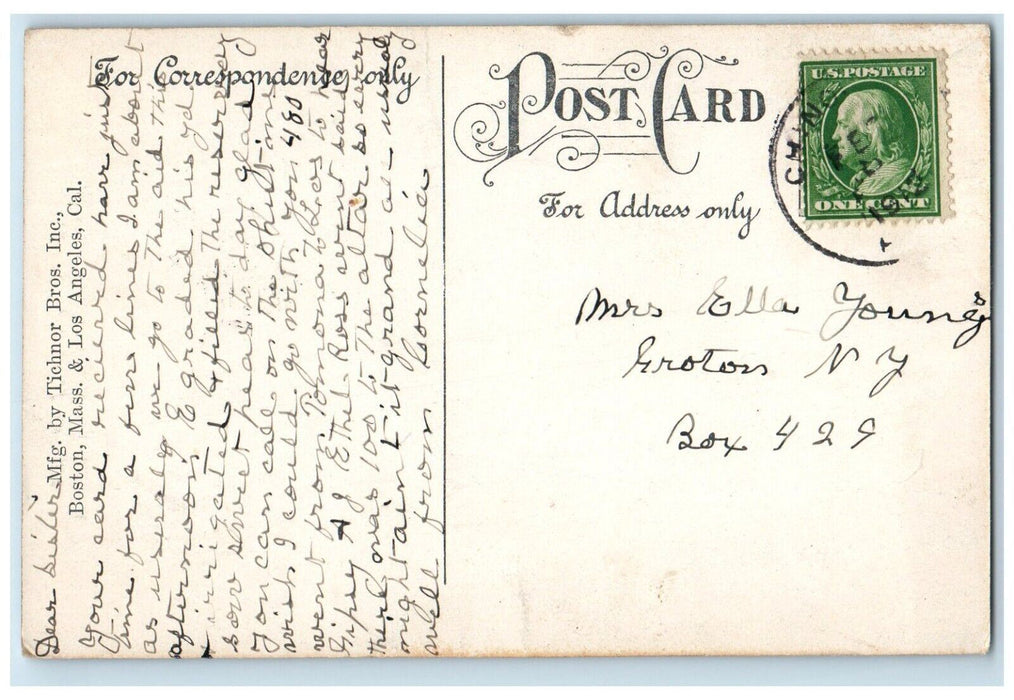 For Correspondence only
POST CARD
For Address only
U.S. POSTAGE
ONE CENT
CHINO
FEB
1913
Mfg. by Tichnor Bros. Inc.,
Boston, Mass. & Los Angeles, Cal.
Mrs Ella Young
Groton N Y
Box 429
Dear Sister
Your card received have just
time for a few lines I am about
as usual we go to the aid this
afternoon E graded his yd
+ irrigated + filled the reservoy
sow sweet peas to day glad
You can call on the Shirtime
wish I could go with you 480
went from Pomona to Los to hear
Gipsy + J Ethel Ross went said
their was 100 to the altar so sorry
might aint it grand as usual
well from Cornelia